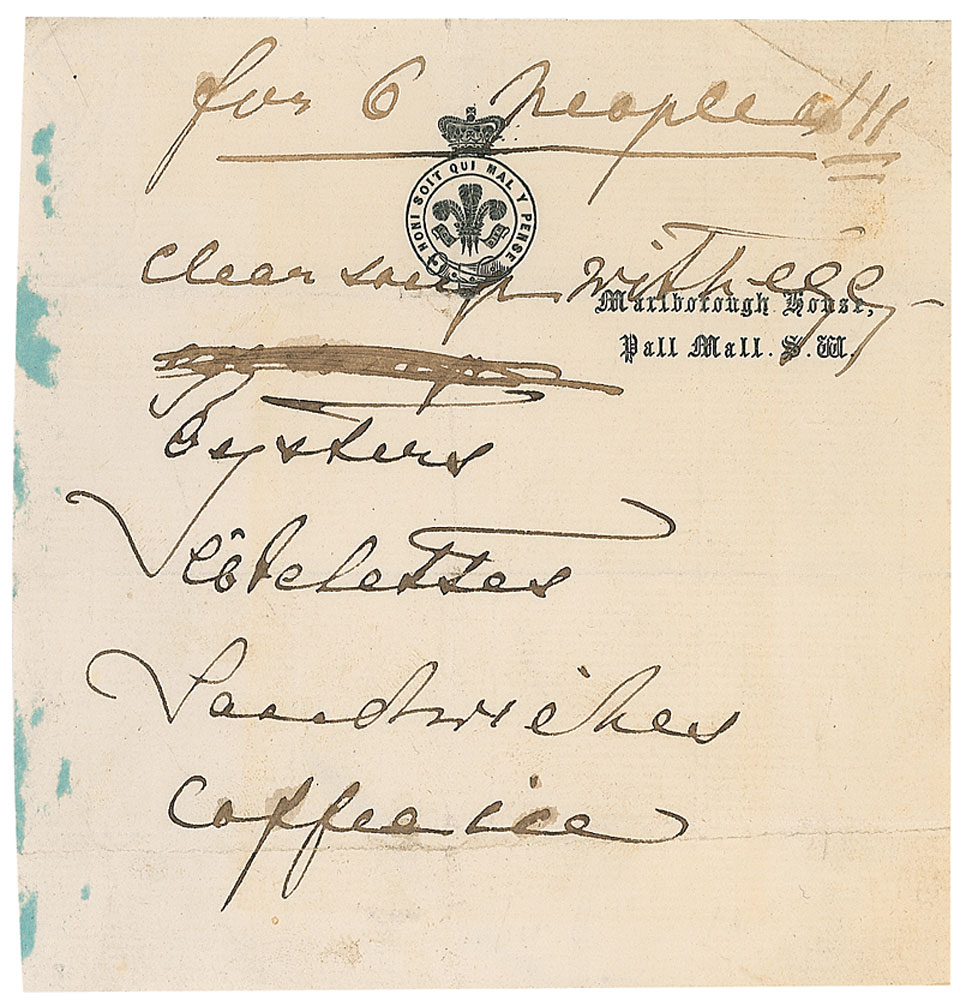 for 6 people at 11
HONI SOIT QUI MAL Y PENSE
clear soup with egg
Marlborough House,
Pall Mall. S.W.
Oysters
Côtelettes
Sandwiches
Coffee ice